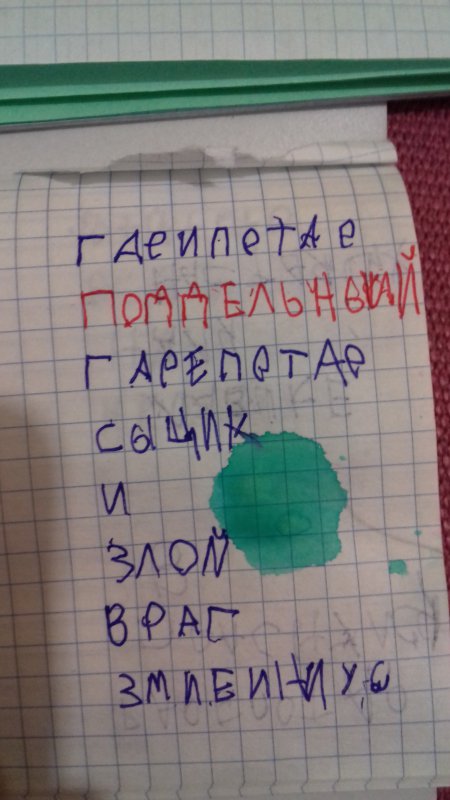 ГАРИПЕТАР
ПОДДЕЛЬНЫЙ
ГАРЕПЕТАР
СЫЩИК
И
ЗЛОЙ
ВРАГ
ЗМИЕИНУС